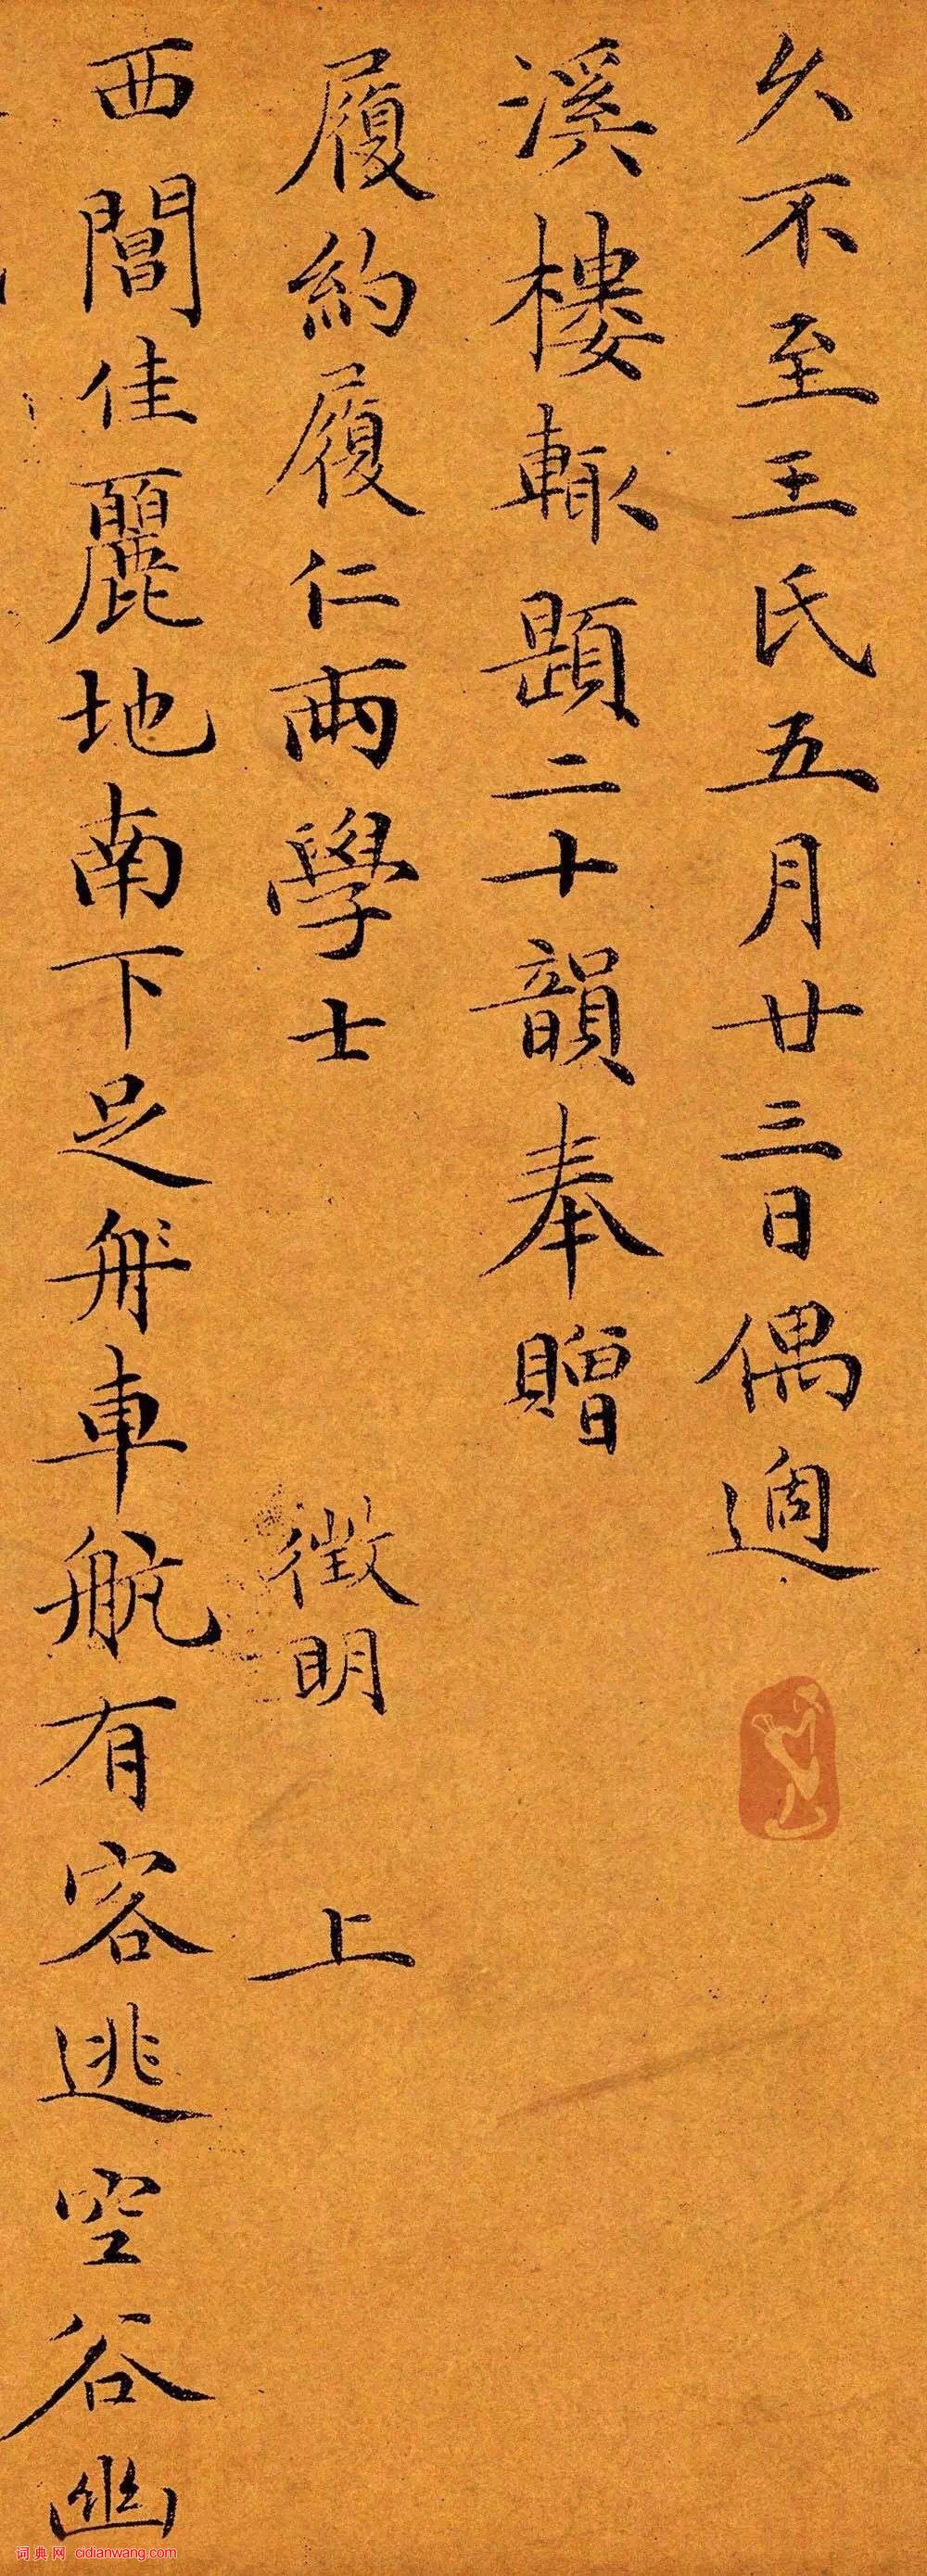 久不至王氏五月廿三日偶過
溪樓輙題二十韻奉贈
履約履仁兩學士 徵明 上
西閶佳麗地南下足舟車航有客逃空谷幽
词典网 cidianwang.com